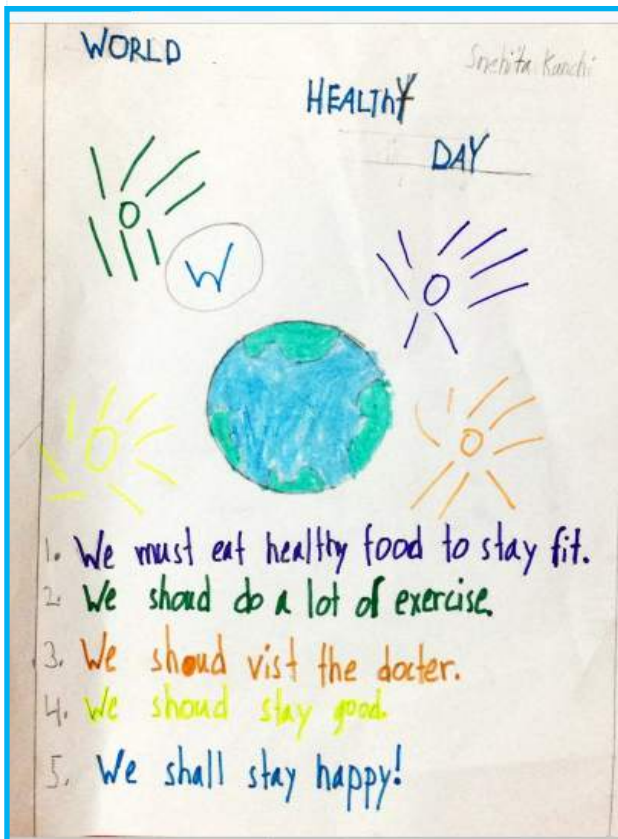 WORLD
Snehita Kanchi
HEALThY
DAY
W
1. We must eat healthy food to stay fit.
2. We shoud do a lot of exercise.
3. We shoud vist the docter.
4. We shoud stay good.
5. We shall stay happy!